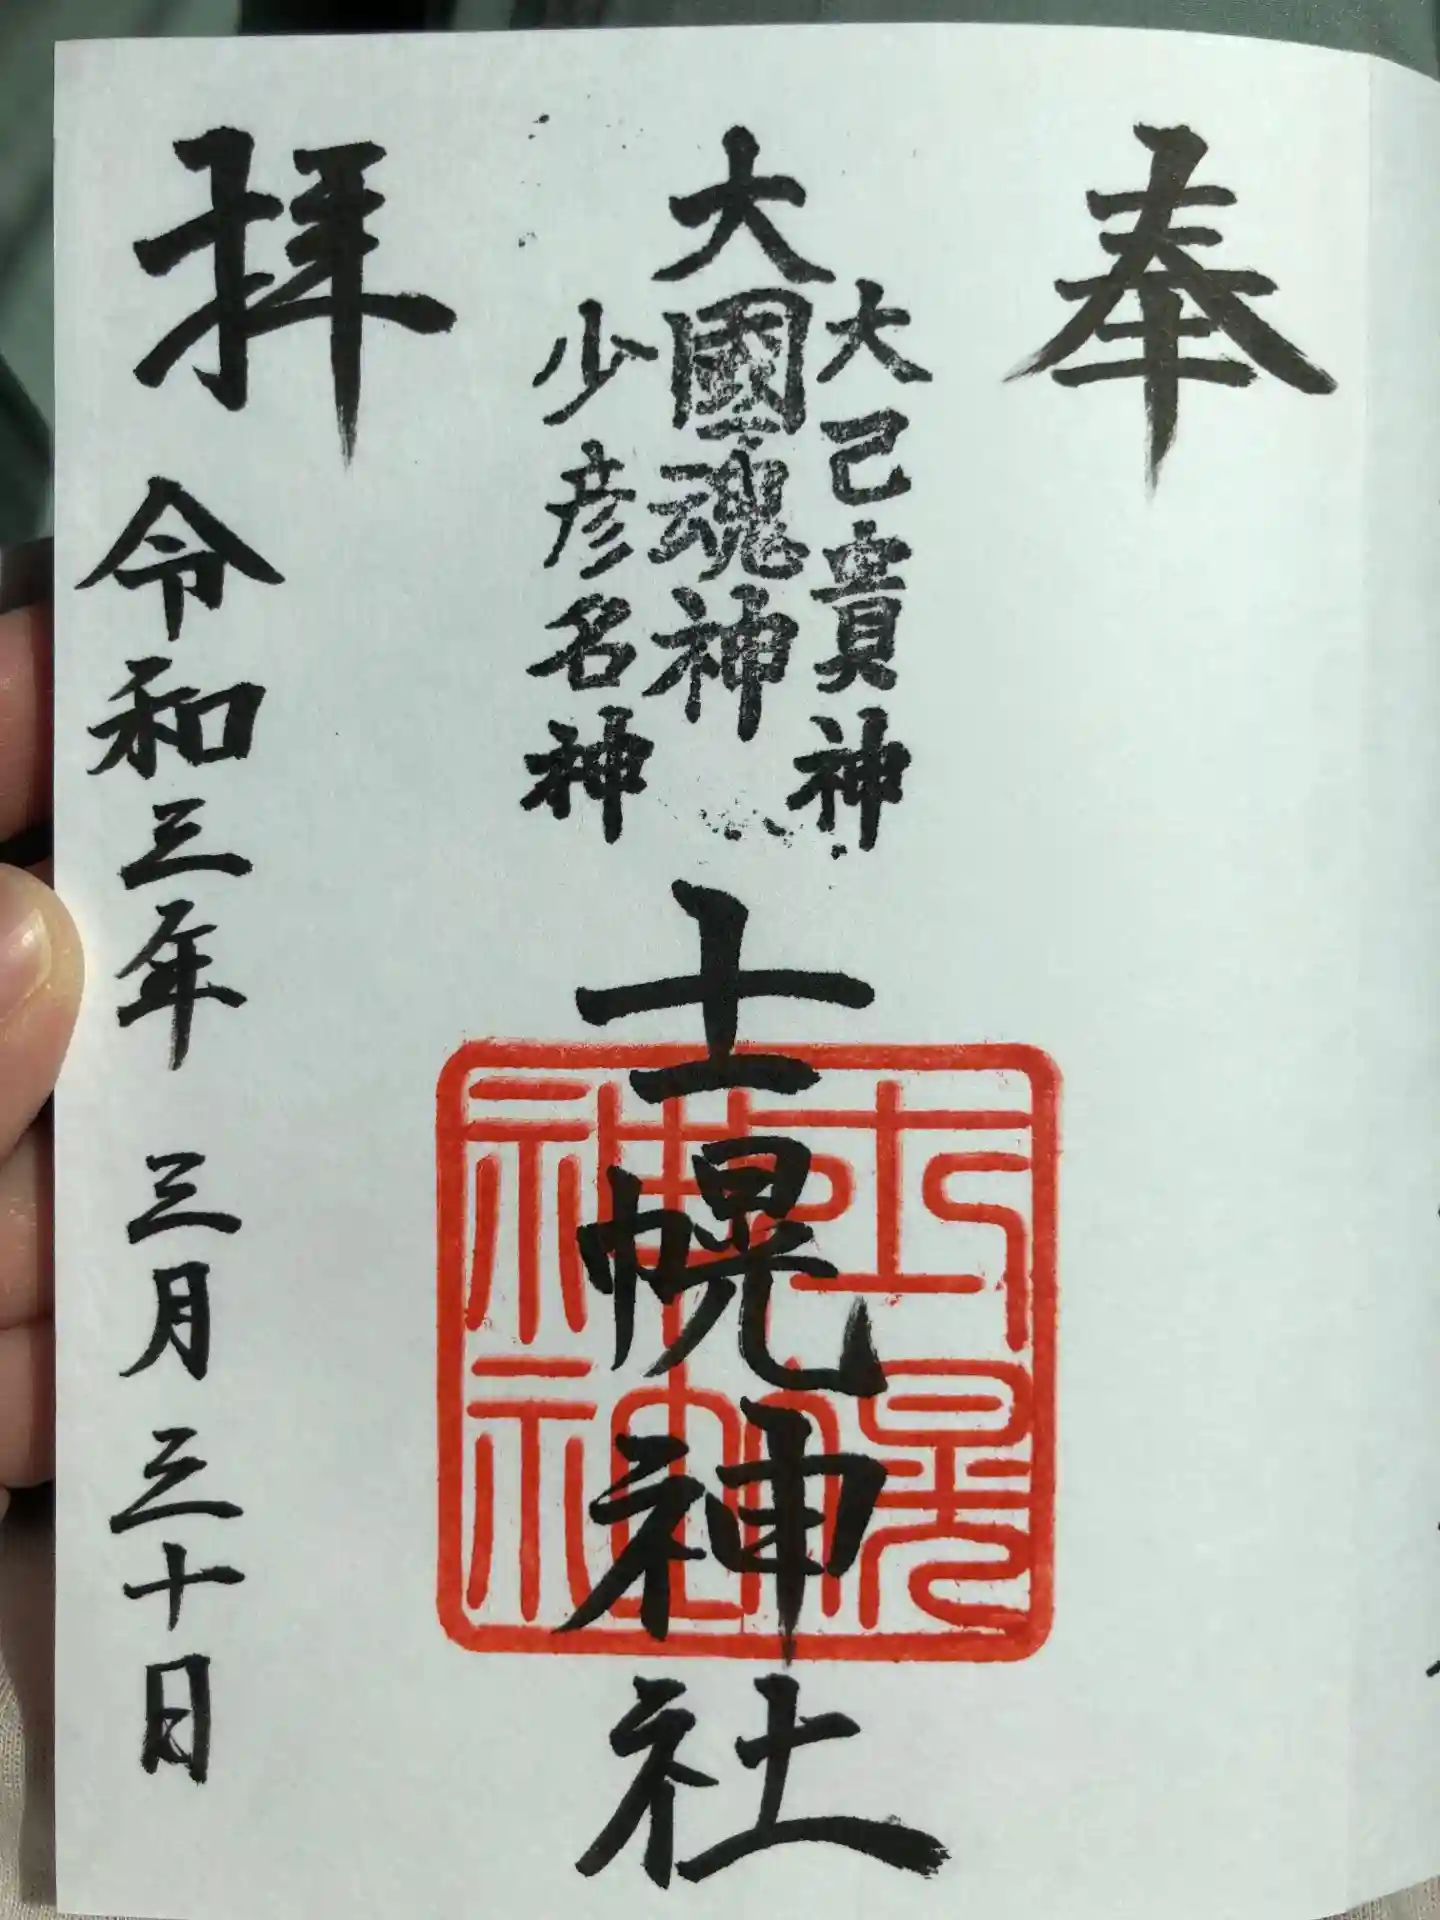 奉
大己貴神
大國魂神
少彦名神
士幌神社
士幌
神社
拝
令和三年 三月三十日